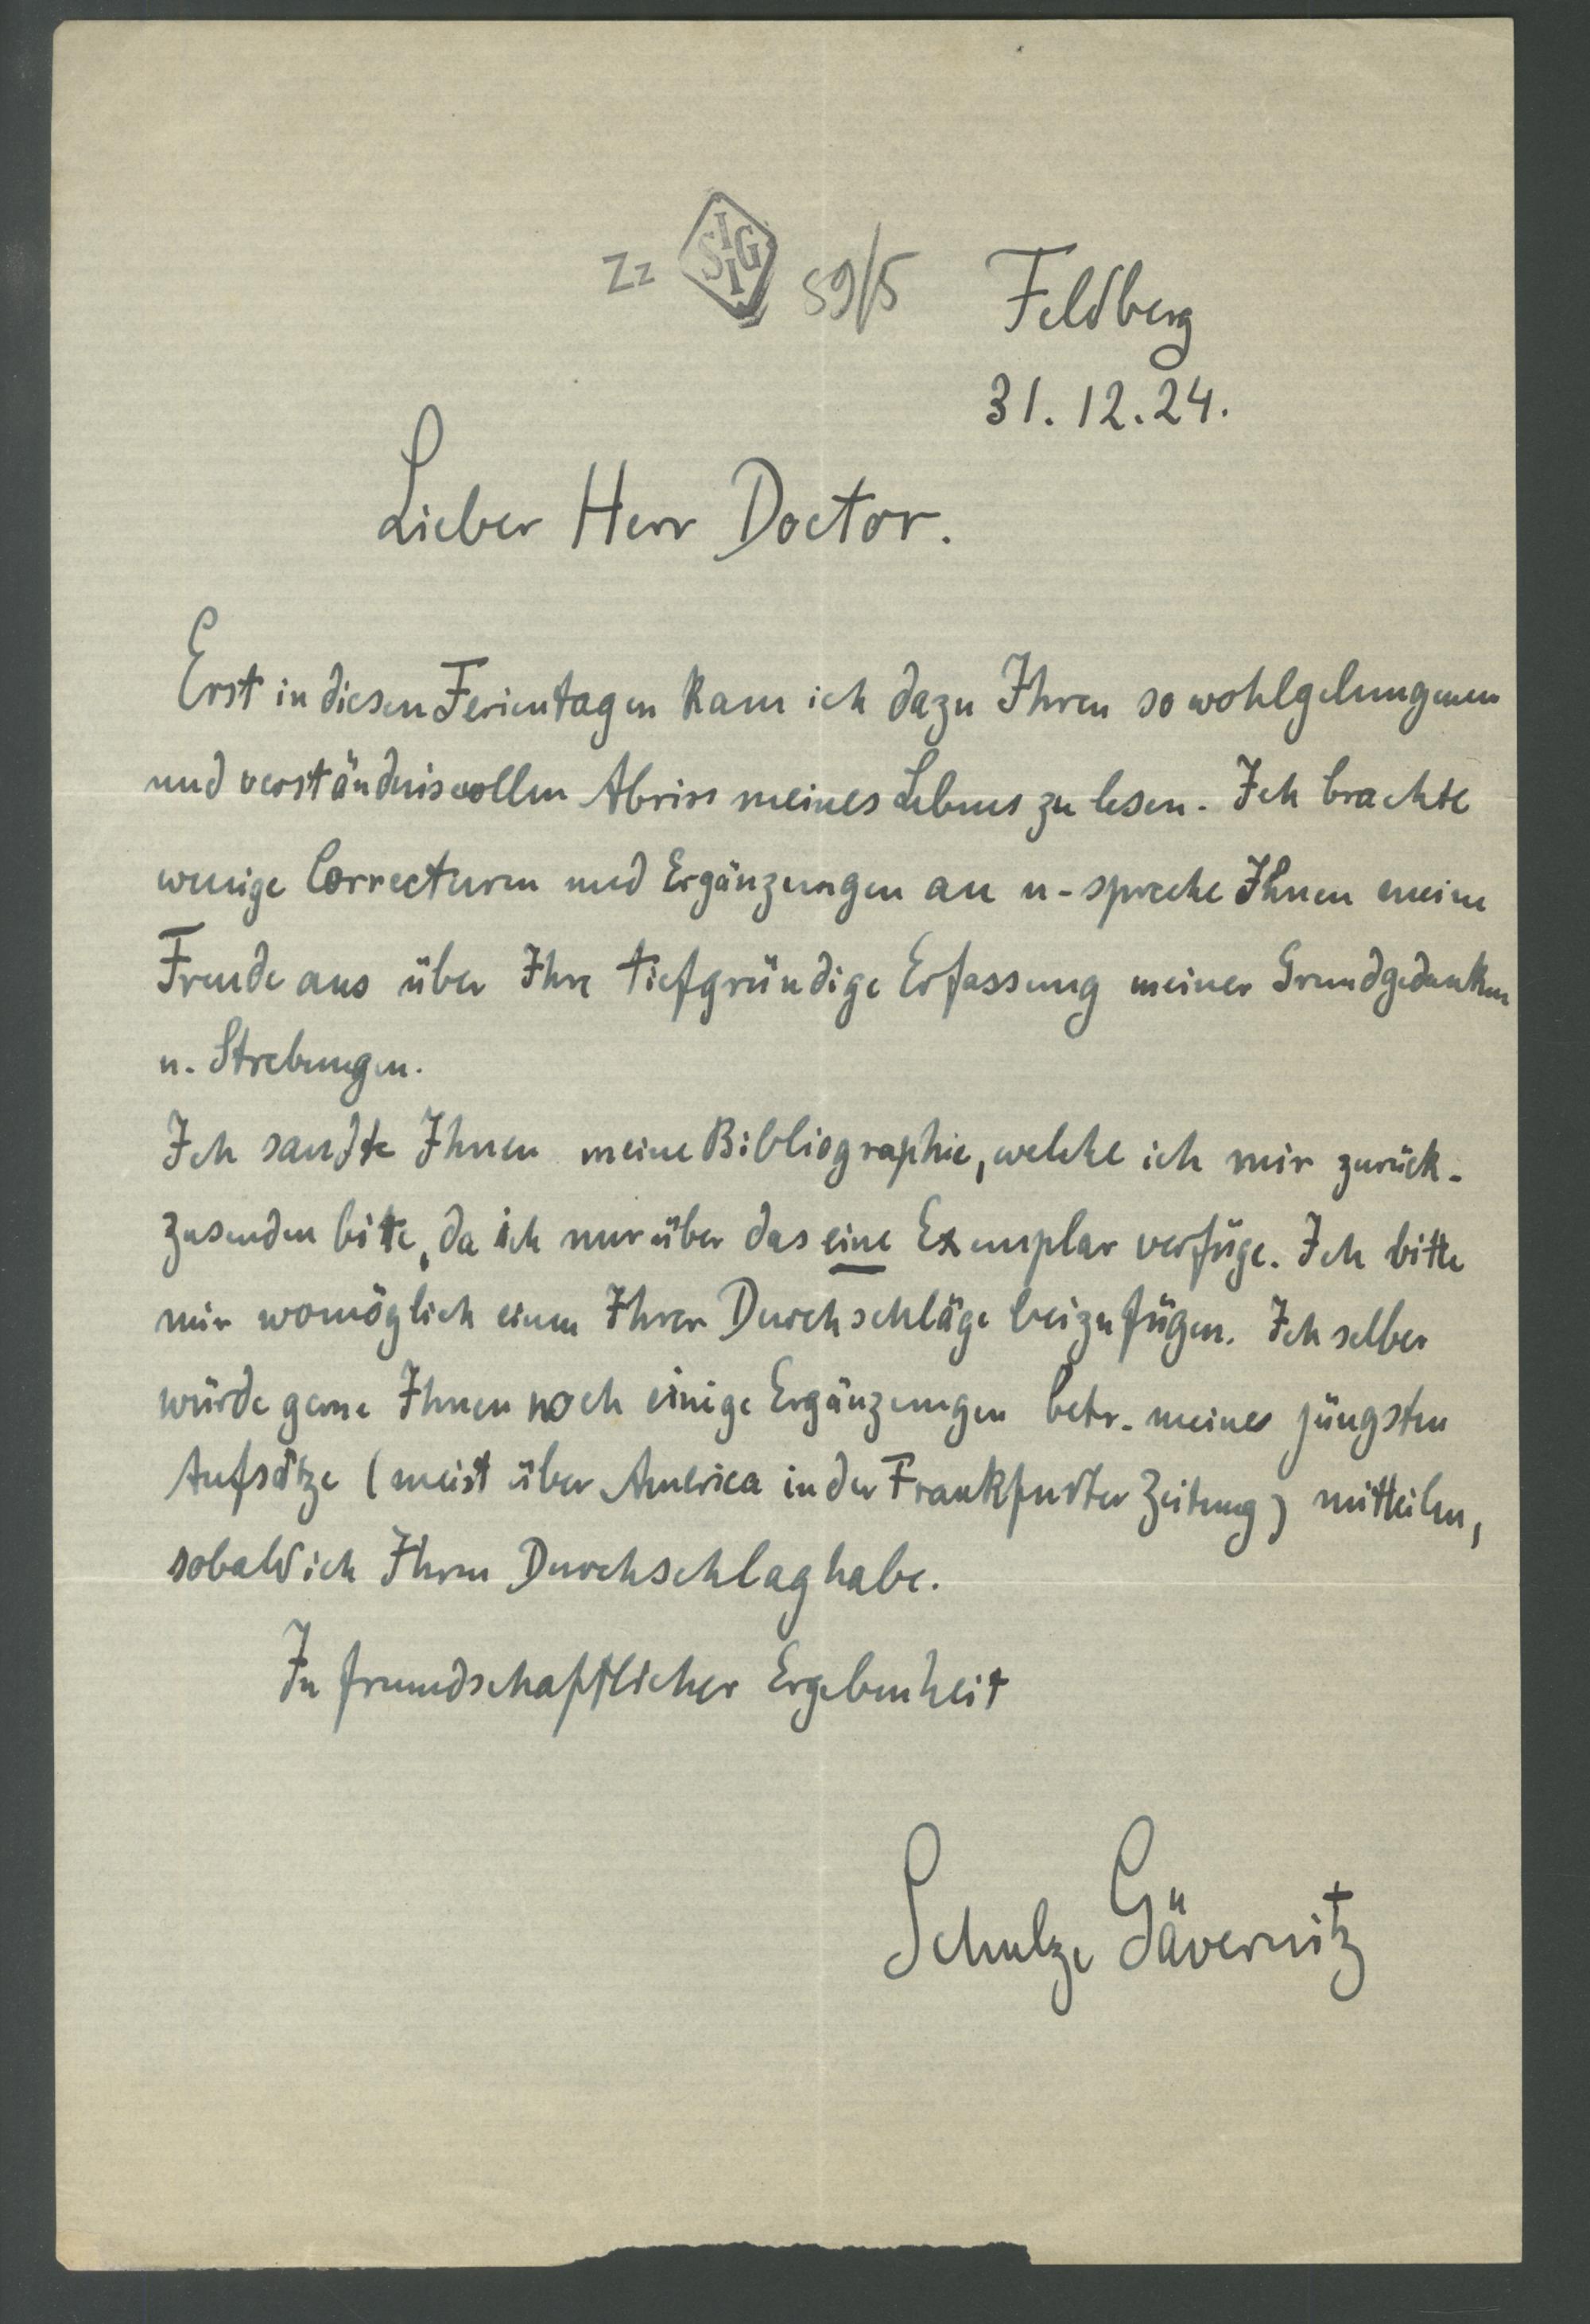 Zz SIIG 59/5
Feldberg
31.12.24.
Lieber Herr Doctor.
Erst in diesen Ferientagen kam ich dazu Ihren so wohlgelungenen
und verständnisvollen Abriss meines Lebens zu lesen. Ich brachte
wenige Correcturen und Ergänzungen an u. spreche Ihnen meine
Freude aus über Ihre tiefgründige Erfassung meiner Grundgedanken
u. Strebungen.
Ich sandte Ihnen meine Bibliographie, welche ich mir zurück-
zusenden bitte, da ich nur über das eine Exemplar verfüge. Ich bitte
mir womöglich einen Ihrer Durchschläge beizufügen. Ich selber
würde gerne Ihnen noch einige Ergänzungen betr. meiner jüngsten
Aufsätze (meist über America in der Frankfurter Zeitung) mitteilen,
sobald ich Ihren Durchschlag habe.
In freundschaftlicher Ergebenheit
Schulze Gävernitz